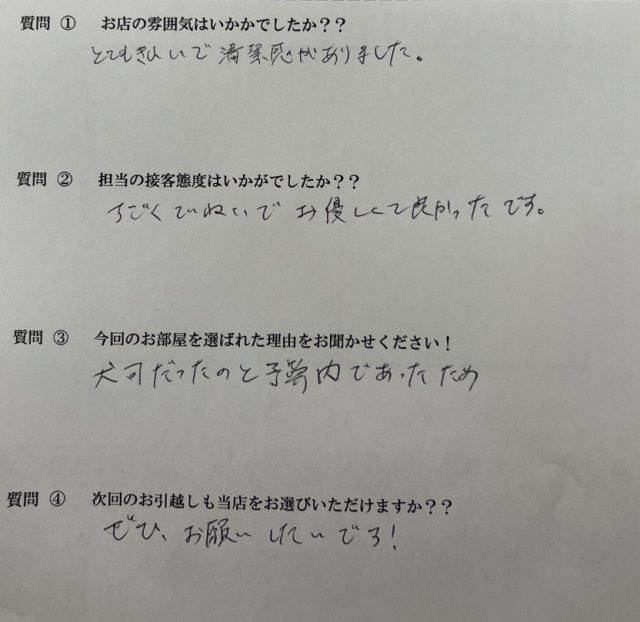 質問 ① お店の雰囲気はいかかでしたか？？
とてもきれいで清潔感がありました。
質問 ② 担当の接客態度はいかがでしたか？？
すごくていねいでお優しくて良かったです。
質問 ③ 今回のお部屋を選ばれた理由をお聞かせください！
犬可だったのと予算内であったため
質問 ④ 次回のお引越しも当店をお選びいただけますか？？
ぜひ、お願いしたいです！